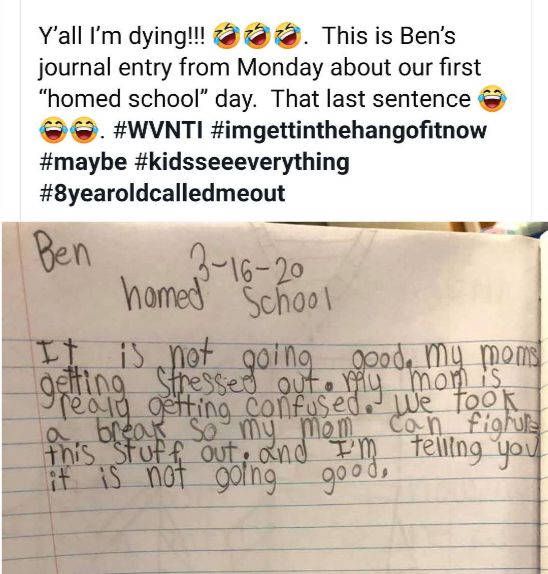 Y'all I'm dying!!! 🤣🤣🤣. This is Ben's
journal entry from Monday about our first
“homed school” day. That last sentence 😂
😂😂. #WVNTI #imgettinthehangofitnow
#maybe #kidsseeeverything
#8yearoldcalledmeout
Ben
3-16-20
homed School
It is not going good. my moms
getting stressed out. My mom is
realy getting confused. We took
a break so my mom can fighure
this stuff out. and I'm telling you
it is not going good.